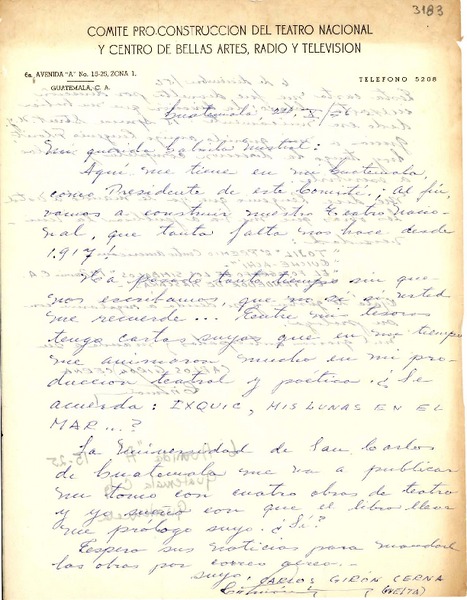 3183
COMITE PRO-CONSTRUCCION DEL TEATRO NACIONAL
Y CENTRO DE BELLAS ARTES, RADIO Y TELEVISION
6a. AVENIDA "A" No. 15-25, ZONA 1.
GUATEMALA, C. A.
TELEFONO 5208
Guatemala, X/56
Mi querida Gabriela Mistral:
Aquí me tiene en mi Guatemala,
como Presidente de este Comité: Al fin,
vamos a construir nuestro Teatro Nacio-
nal, que tanta falta nos hace desde
1.917!
Ha pasado tanto tiempo sin que
nos escribamos, que no sé si usted
me recuerde... Entre mis tesoros
tengo cartas suyas que en un tiempo
me animaron mucho en mi pro-
ducción teatral y poética. ¿Se
acuerda: IXQUIC, MIS LUNAS EN EL
MAR...?
La Universidad de San Carlos
de Guatemala me va a publicar
un tomo con cuatro obras de teatro
y yo sueño con que el libro lleve
un prólogo suyo. ¿Sí?
Espero sus noticias para mandarle
las obras por correo aéreo.-
Suyo, CARLOS GIRÓN CERNA
(VUELTA)